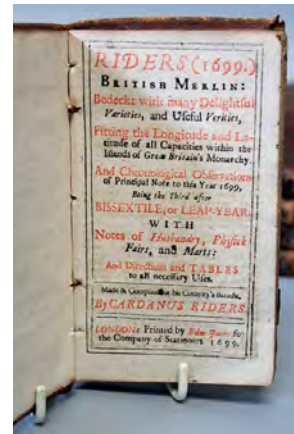 RIDERS (1699.)
BRITISH MERLIN:
Bedeckt with many Delightful
Varieties, and Useful Verities,
Fitting the Longitude and La-
titude of all Capacities within the
Islands of Great Britain's Monarchy.
And Chronological Observations
of Principal Note to this Year 1699,
Being the Third after
BISSEXTILE, or LEAP-YEAR.
WITH
Notes of Husbandry, Physick
Fairs, and Marts:
And Directions and TABLES
to all necessary Uses.
Made & Compiled for his Country's Benefit,
By CARDANUS RIDERS.
LONDON: Printed by Edw. Jones for
the Company of Stationers. 1699.